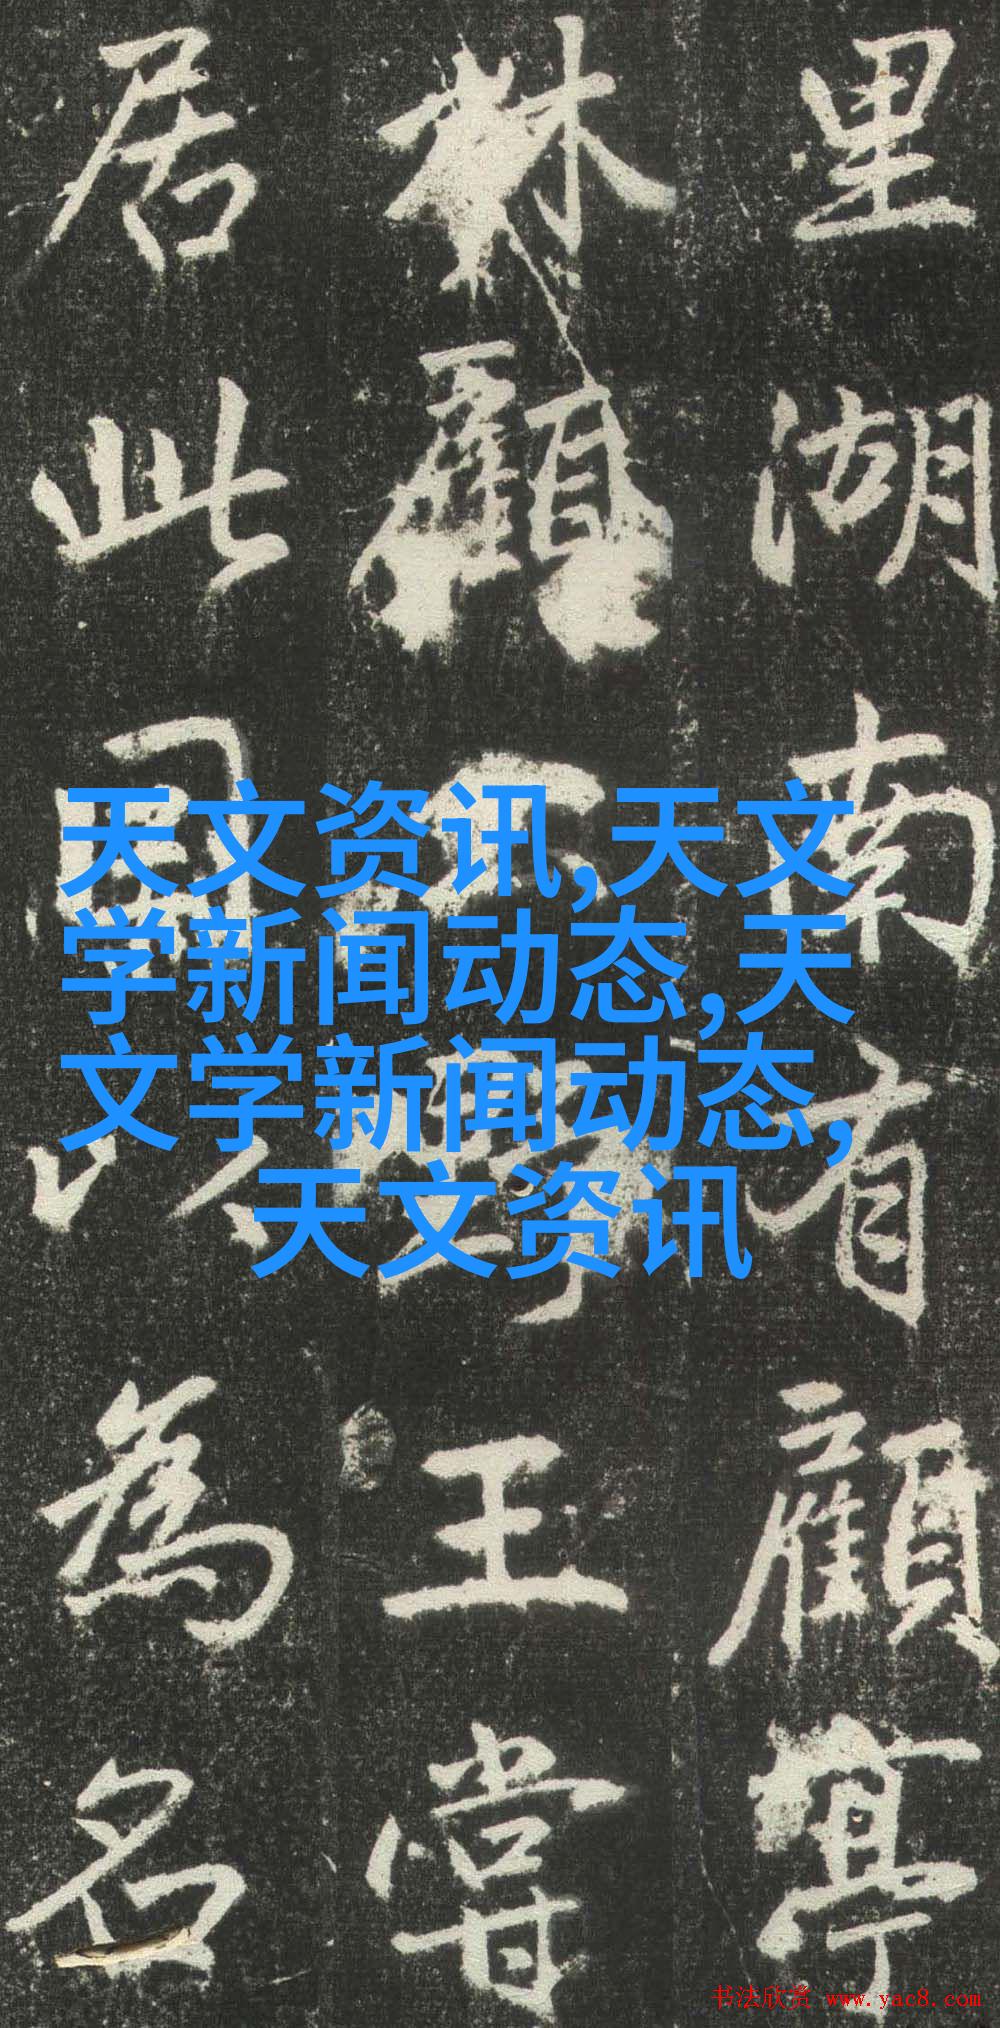 里湖南有顧亭
林顧野王嘗
居此因以為名
天文资讯,天文
学新闻动态,天
文学新闻动态,
天文资讯
书法欣赏 www.yac8.com